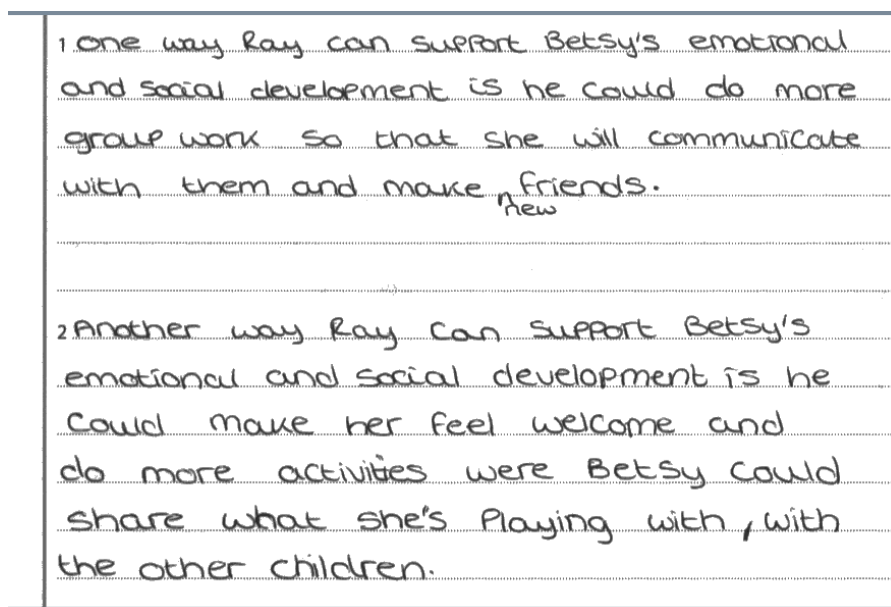 1 One way Ray can support Betsy's emotional
and social development is he could do more
group work so that she will communicate
with them and make new friends.
2 Another way Ray can support Betsy's
emotional and social development is he
could make her feel welcome and
do more activities were Betsy could
share what she's playing with, with
the other children.